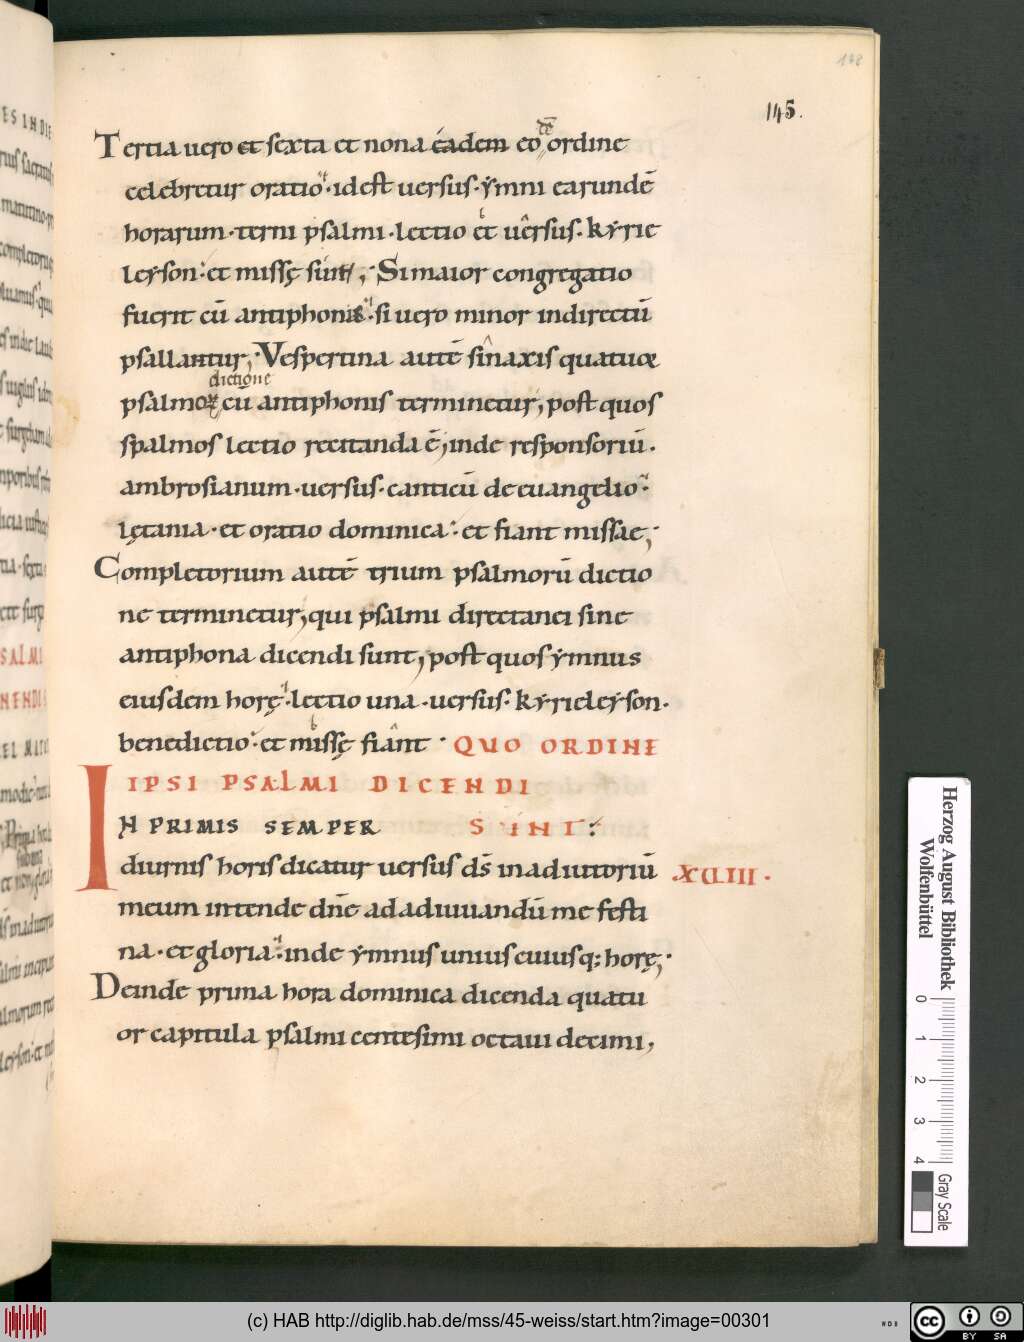 148
145.
Tertia uero et sexta et nona eadem eo ordine
celebretur oratio · id est uersus · ẏmni earundē
horarum · terni psalmi · lectio et uersus · kẏrie
leẏson · et missę sunt ; Si maior congregatio
fuerit cū antiphonis · si uero minor indirectū
psallantur ; Vespertina autē sinaxis quatuor
dictione
psalmoꝝ cū antiphonis terminetur ; post quos
spalmos lectio recitanda ē ; inde responsoriū ·
ambrosianum · uersus · canticū de euangelio ·
lętania · et oratio dominica · et fiant missae ;
Completorium autē trium psalmorū dictio
ne terminetur ; qui psalmi directanei sine
antiphona dicendi sunt ; post quos ẏmnus
eiusdem horę · lectio una · uersus · kẏrieleẏson ·
benedictio · et missę fiant · QUO ORDINE
IPSI PSALMI DICENDI
IN PRIMIS SEMPER SINT :
diurnis horis dicatur uersus ds̄ in adiutoriū .XLIII.
meum intende dn̄e ad adiuuandū me festi
na · et gloria · inde ẏmnus unius cuiusq; horę ;
Deinde prima hora dominica dicenda quatu
or capitula psalmi centesimi octaui decimi ;
Herzog August Bibliothek
Wolfenbüttel
0 1 2 3 4
Gray Scale
(c) HAB http://diglib.hab.de/mss/45-weiss/start.htm?image=00301
cc BY SA